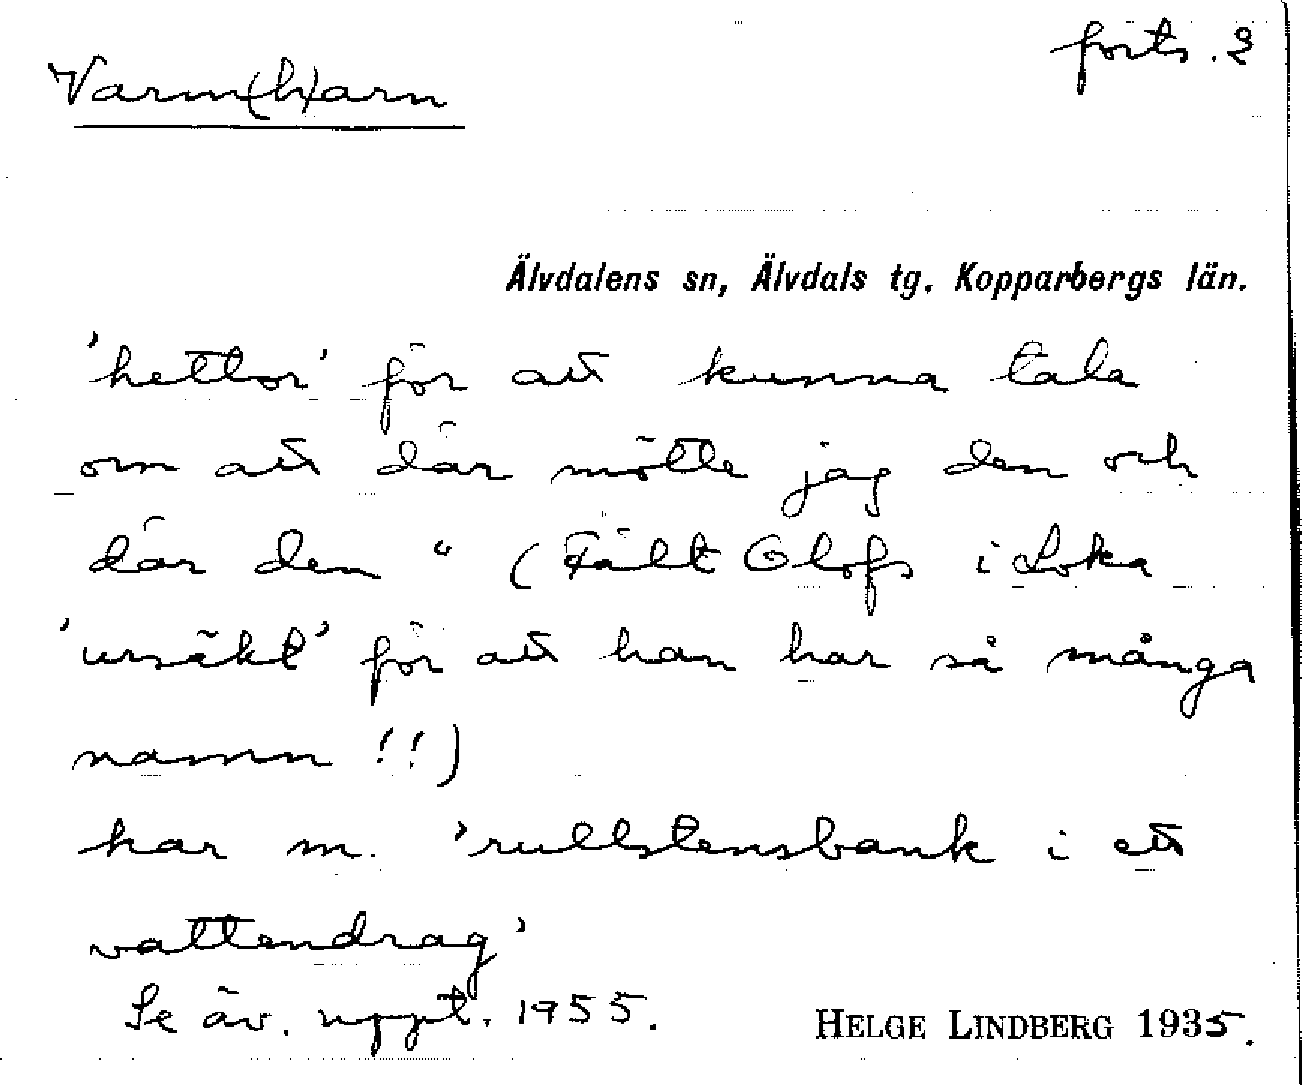 Varm(h)arn
forts. 2
Älvdalens sn, Älvdals tg. Kopparbergs län.
'hettor' för att kunna tala
om att där mötte jag den och
där den " (Fält Olofs i Loka
'ursäkt' för att han har så många
namn !!)
har m. 'rullstensbank i ett
vattendrag'
Se äv. uppt. 1955.
HELGE LINDBERG 1935.